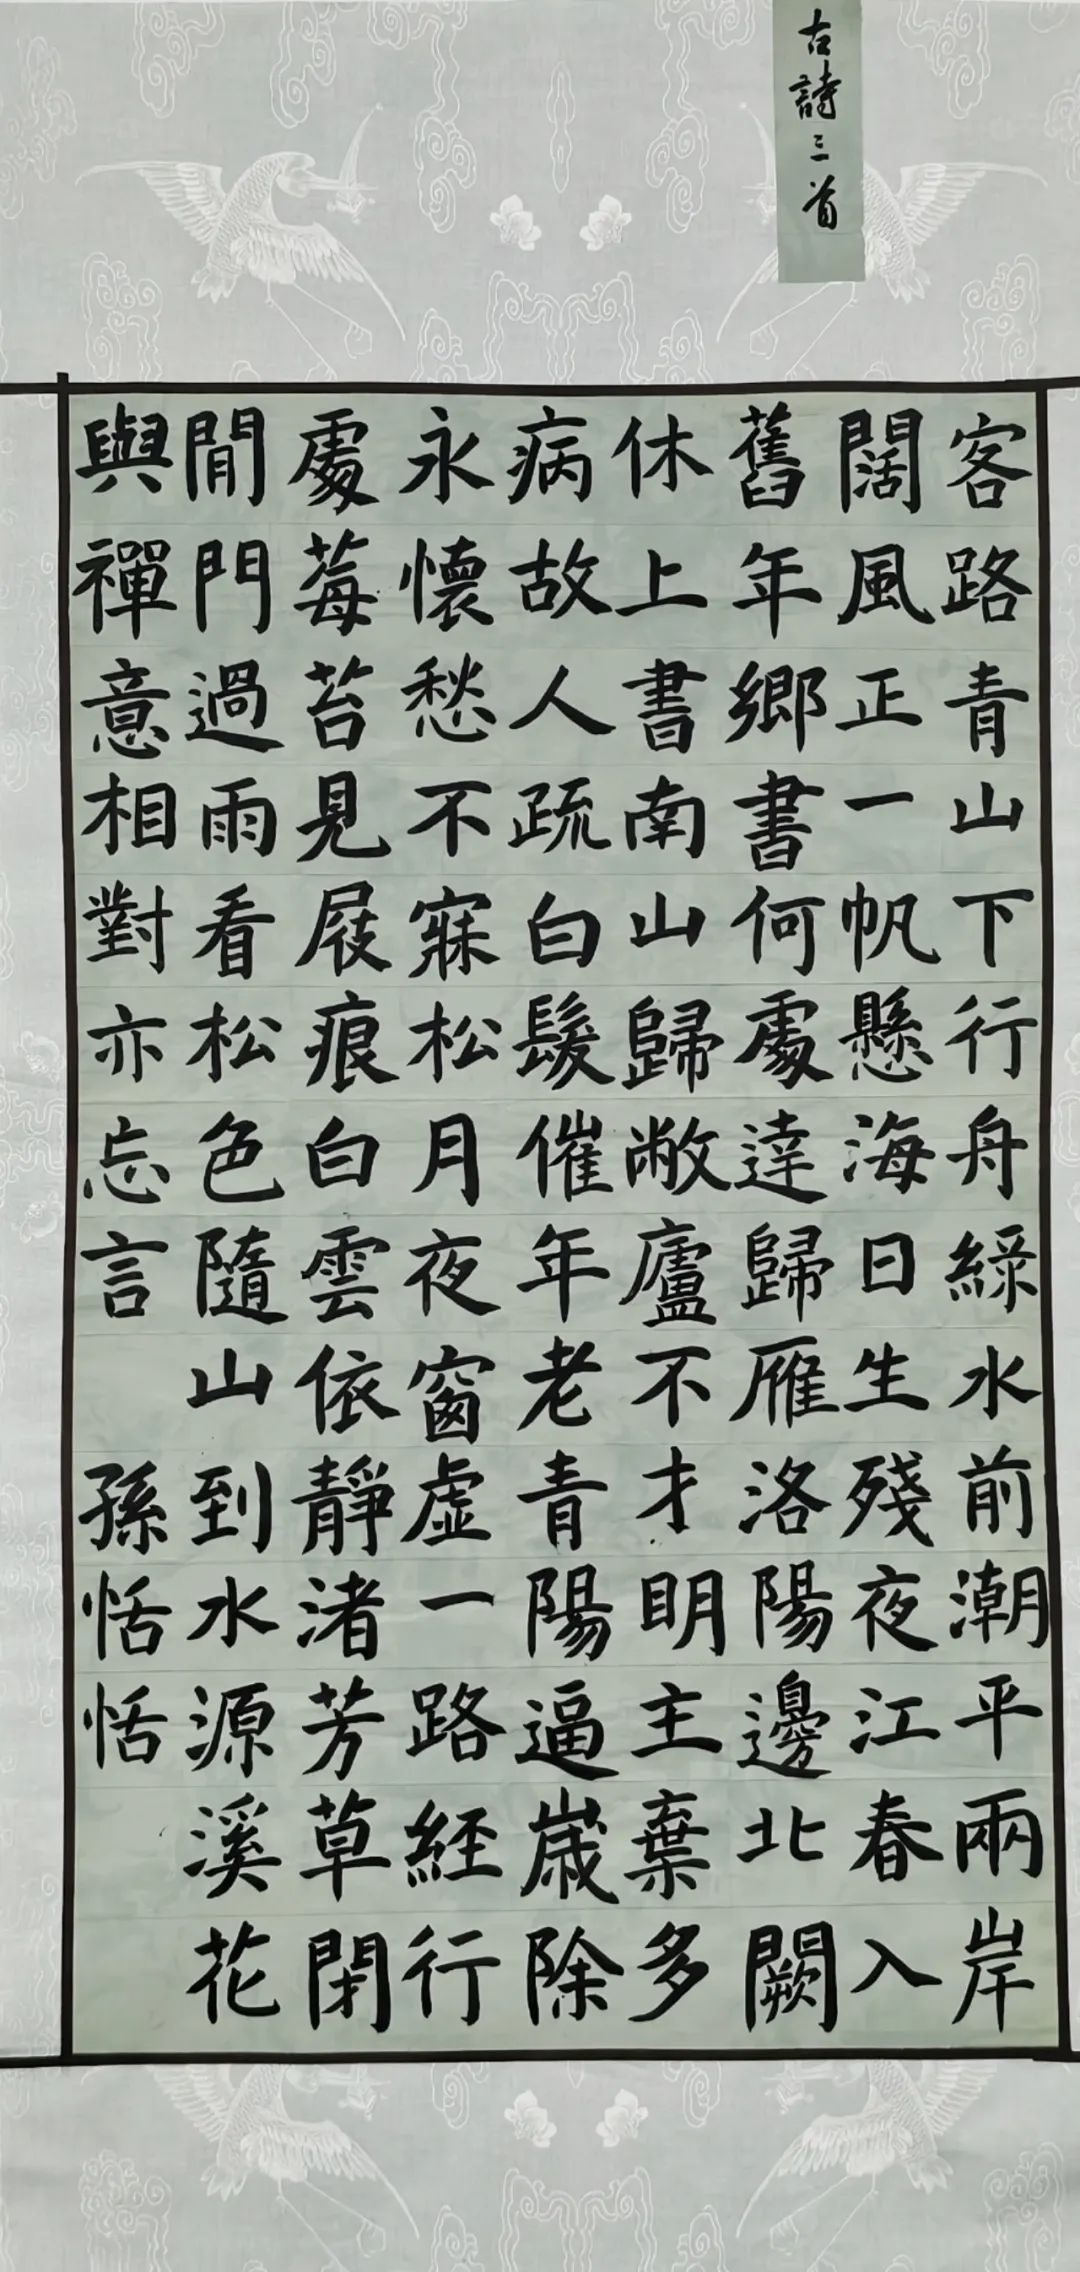 古詩三首
客路青山下行舟綠水前潮平兩岸
闊風正一帆懸海日生殘夜江春入
舊年鄉書何處達歸雁洛陽邊北闕
休上書南山歸敝廬不才明主棄多
病故人疏白髮催年老青陽逼歲除
永懷愁不寐松月夜窗虛一路經行
處莓苔見屐痕白雲依靜渚芳草閉
閒門過雨看松色隨山到水源溪花
與禪意相對亦忘言 孫恬恬